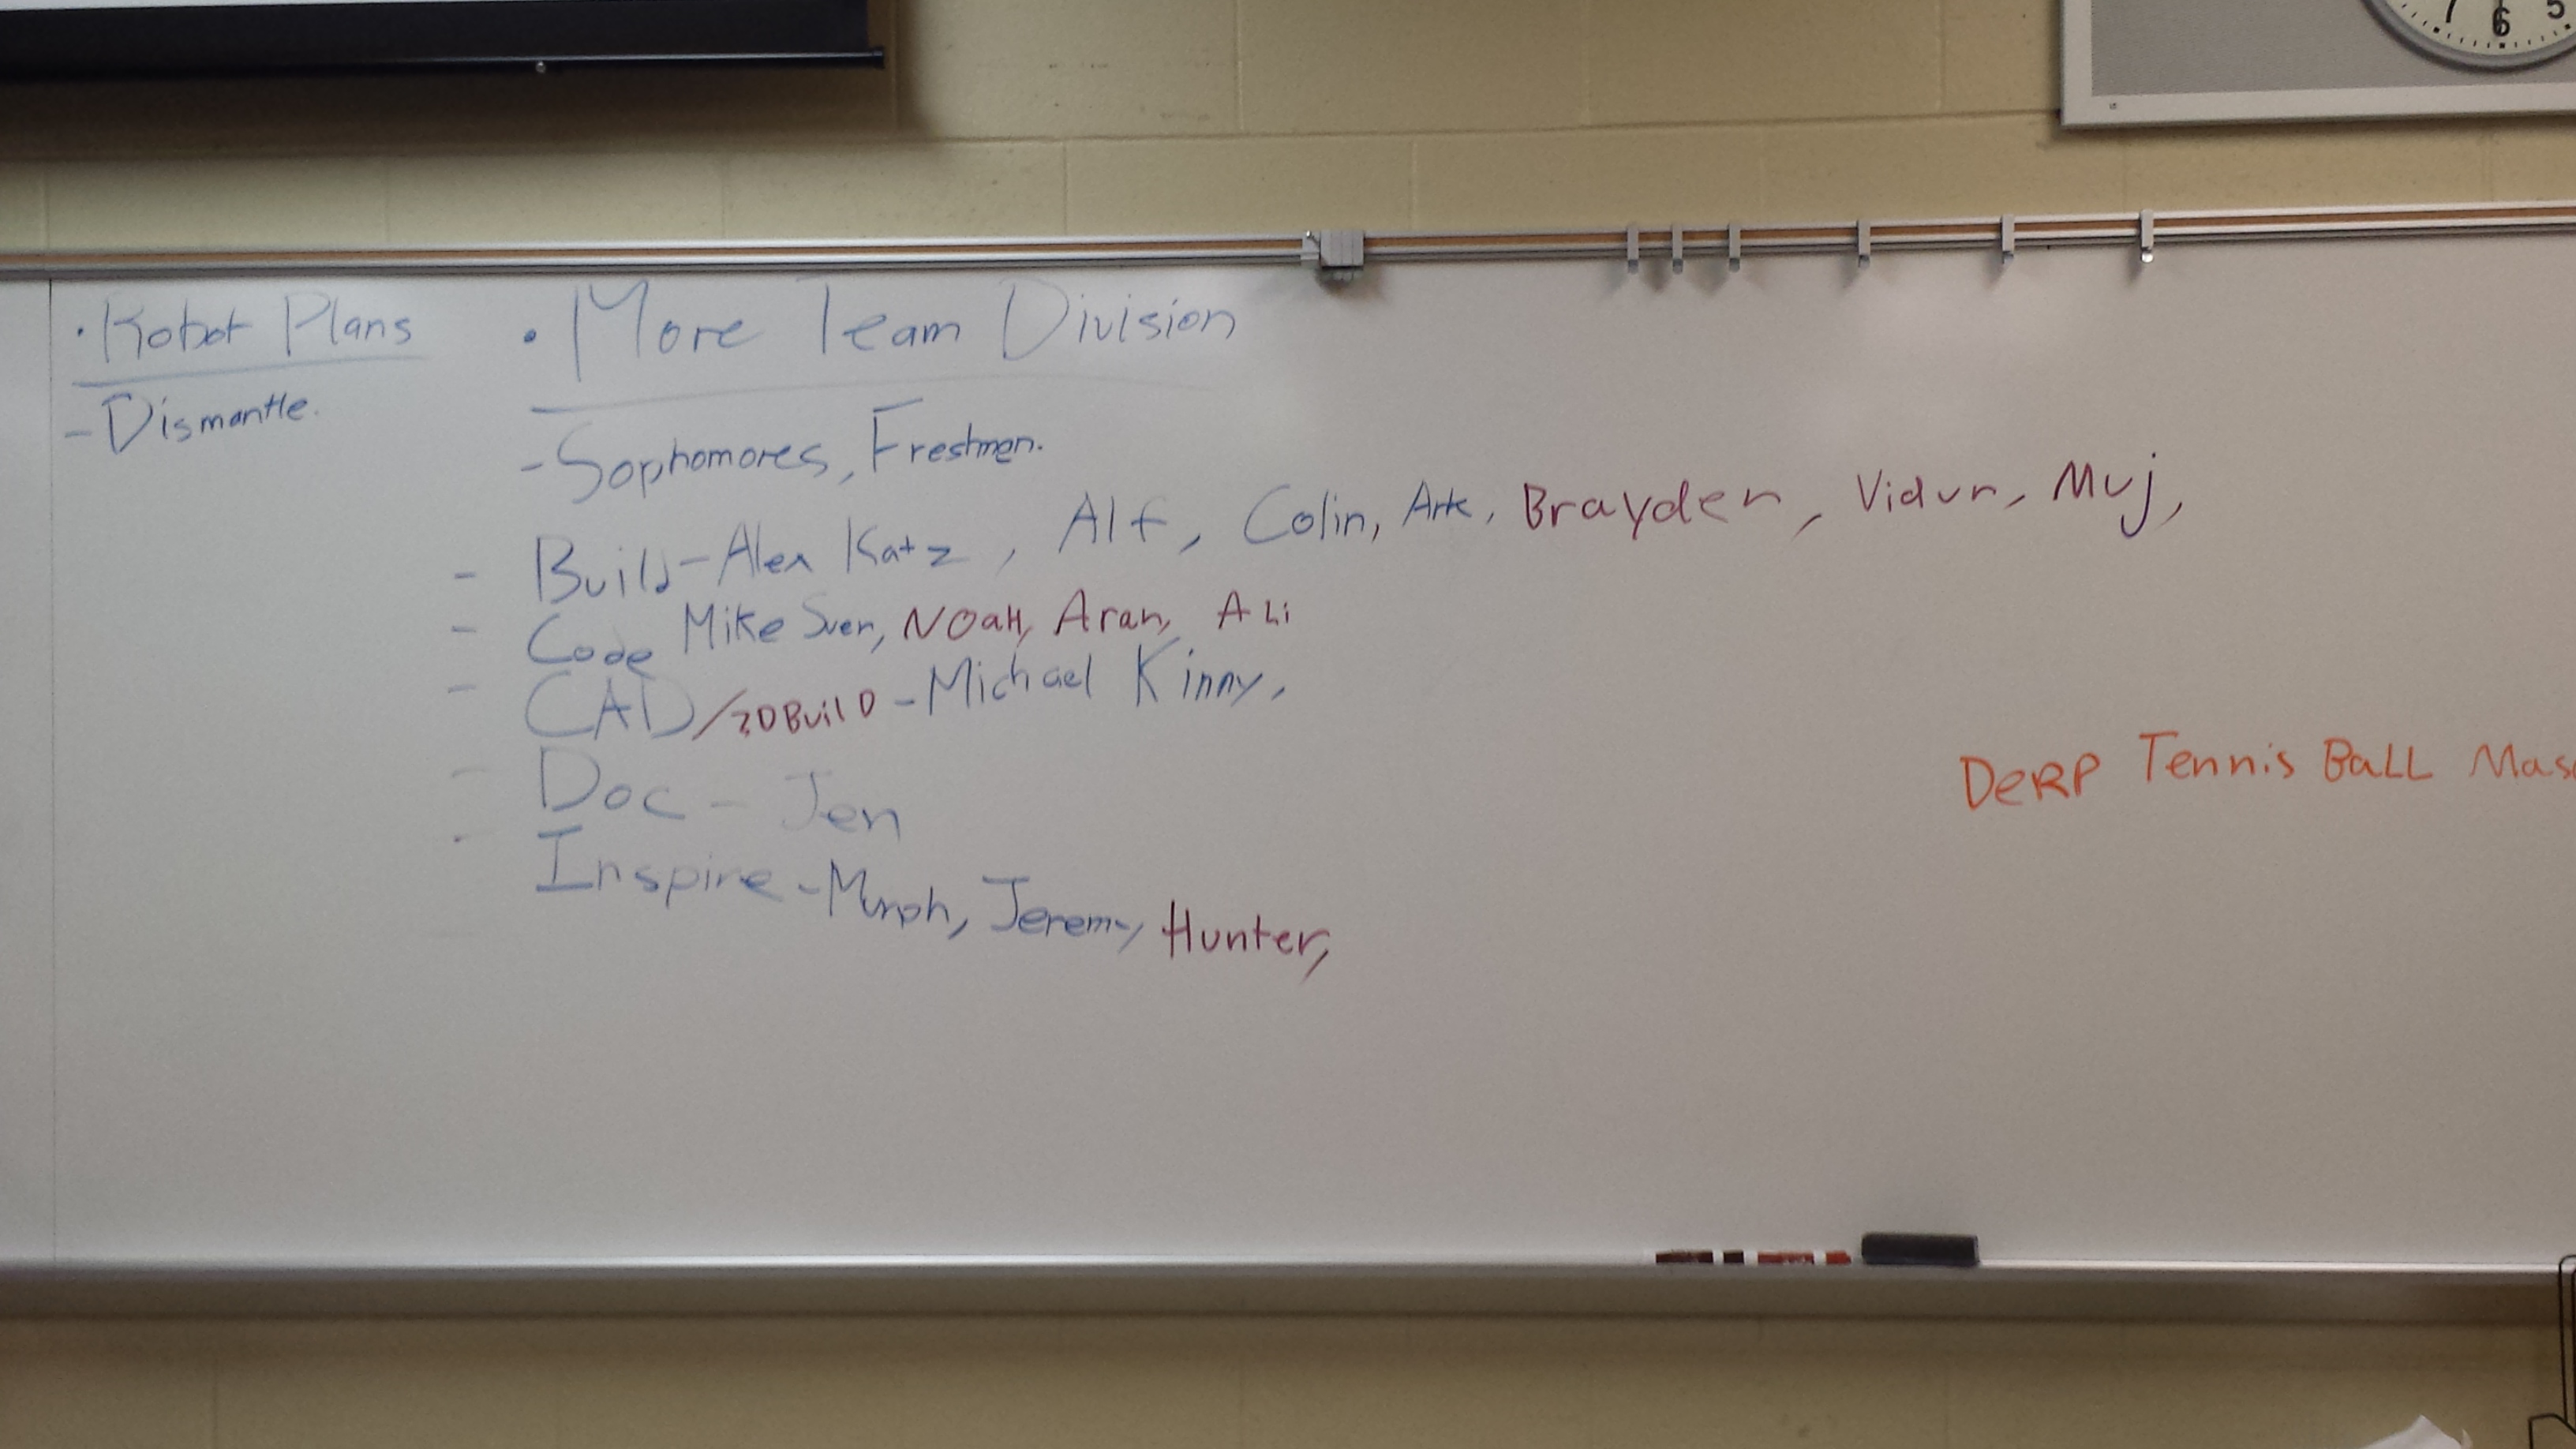 7 6 5
• Robot Plans
- Dismantle.
• More Team Division
- Sophomores, Freshmen.
- Build - Alex Katz, Alf, Colin, Ark, Brayden, Vidur, Muj,
- Code Mike Sven, NOaH, Aran, ALi
- CAD/3D BuilD - Michael Kinny,
- Doc - Jen
- Inspire - Murph, Jeremy Hunter,
DeRP Tennis BaLL